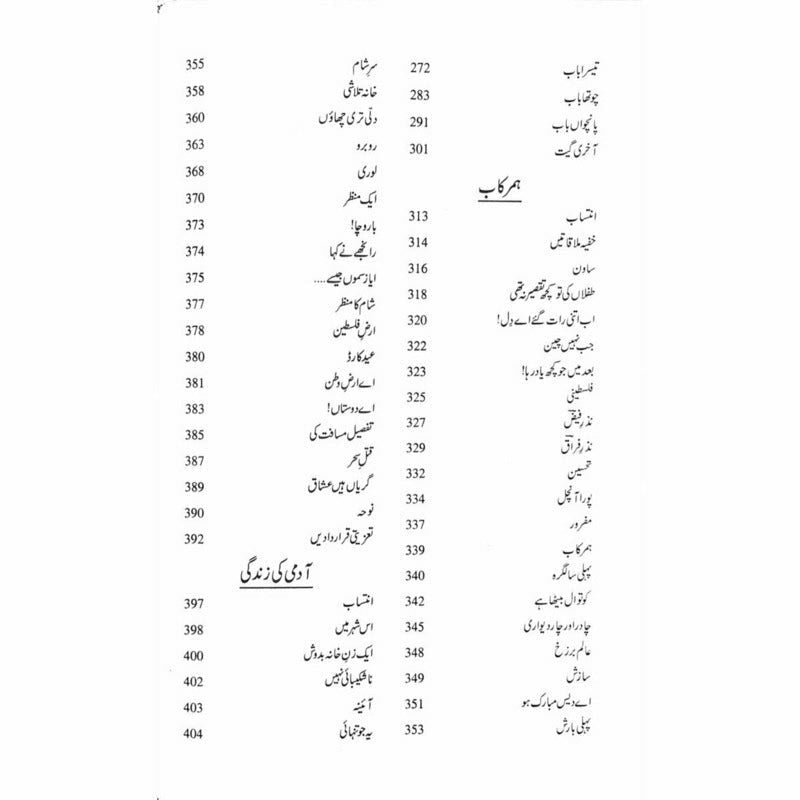 تیسرا باب 272
چوتھا باب 283
پانچواں باب 291
آخری گیت 301
ہمرکاب
انتساب 313
خفیہ ملاقاتیں 314
ساون 316
طفلاں کی تو کچھ تقصیر نہ تھی 318
اب اتنی رات گئے اے دل! 320
جب نہیں چین 322
بعد میں جو کچھ یاد رہا! 323
فلسطینی 325
نذرِ فیضؔ 327
نذرِ فراقؔ 329
تحسین 332
پورا آنچل 334
مفرور 337
ہمرکاب 339
پہلی سالگرہ 340
کوتوال بیٹھا ہے 342
چادر اور چاردیواری 345
عالم برزخ 348
سازش 349
اے دیس مبارک ہو 351
پہلی بارش 353
سرِ شام 355
خانہ تلاشی 358
دلّی تری چھاؤں 360
روبرو 363
لوری 368
ایک منظر 370
باروچا! 373
رانجھے نے کہا 374
ایاز سموں جیسے .... 375
شام کا منظر 377
ارضِ فلسطین 378
عید کارڈ 380
اے ارضِ وطن 381
اے دوستاں! 383
تفصیل مسافت کی 385
قتلِ سحر 387
گریاں ہیں عشاق 389
نوحہ 390
تعزیتی قراردادیں 392
آدمی کی زندگی
انتساب 397
اس شہر میں 398
ایک زنِ خانہ بدوش 400
ناشکیبائی نہیں 402
آئینہ 403
یہ جو تنہائی 404